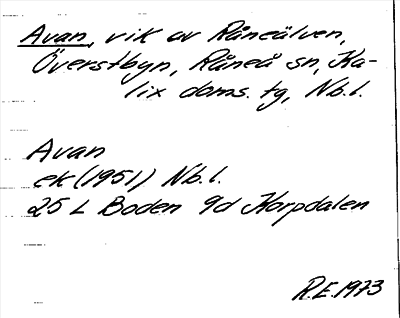 Avan, vik av Råneälven,
Överstbyn, Råneå sn, Ka-
lix doms. tg, Nb.l.
Avan
ek (1951) Nb.l.
25 L Boden 9d Korpdalen
R.E. 1973